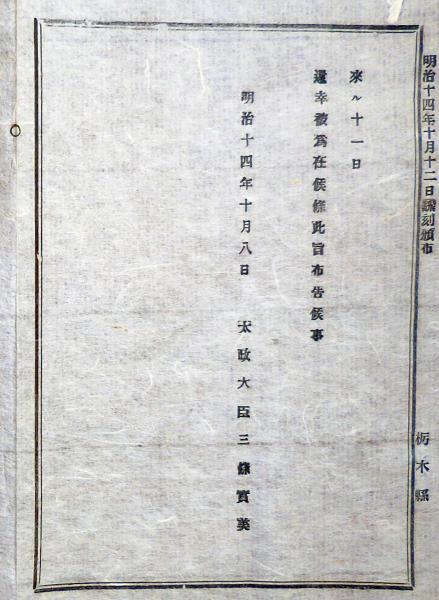 明治十四年十月十二日飜刻頒布
栃木縣
來ル十一日
還幸被爲在候條此旨布告候事
明治十四年十月八日 太政大臣三條實美